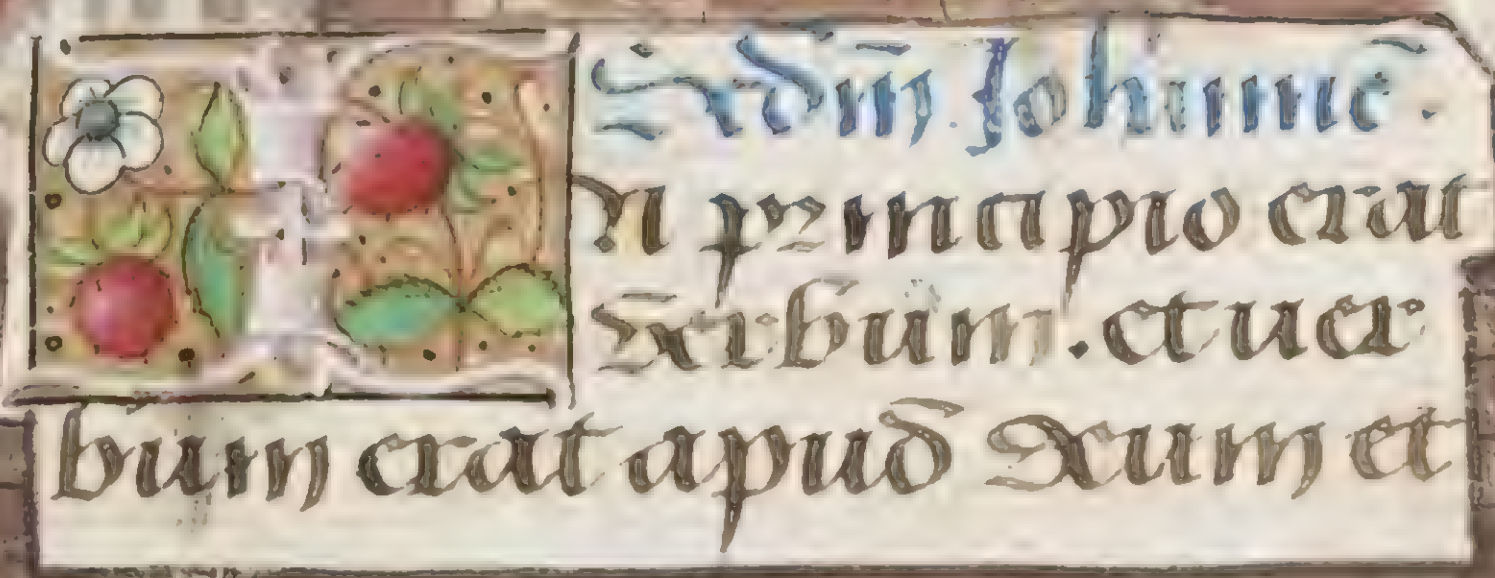 Scdm̄ Johannē.
In principio erat
Verbum . et uer
bum erat apud Deum et